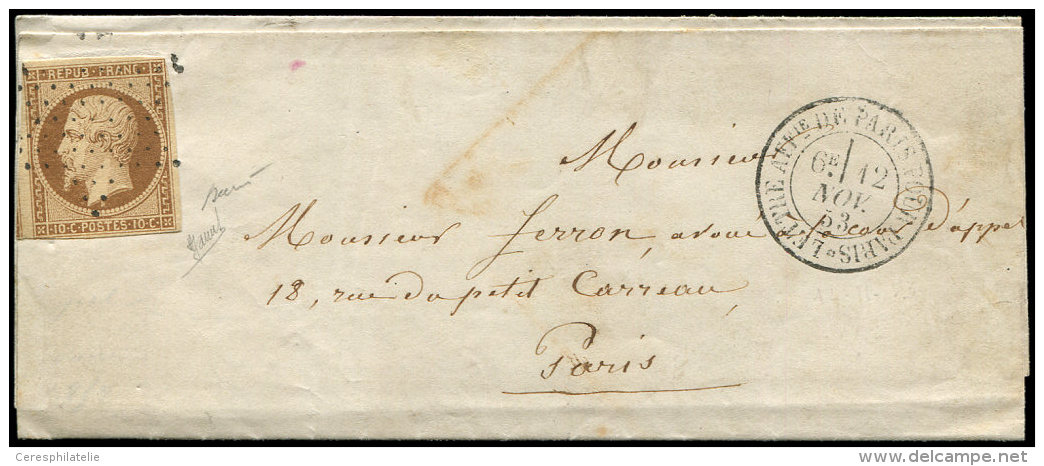 REPUB·FRANC·
·10·C·POSTES·10·C·
LETTRE AFF.IE DE PARIS POUR PARIS
6E 12
NOV.
53
Monsieur
Monsieur Ferron, avoué à la cour d'appel
18, rue du petit Carreau,
Paris
Ceresphilatelie
delcampe.net